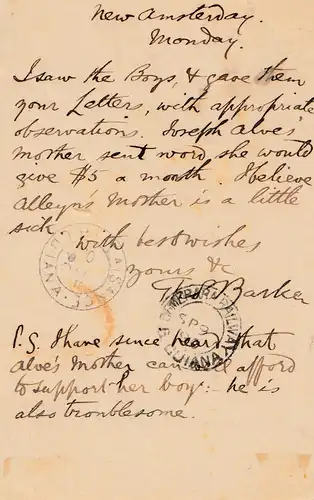 New Amsterday.
Monday.
I saw the Boys, & gave them
your Letters, with appropriate
observations. Joseph Alve's
mother sent word, she would
give $5 a month. I believe
Alleyns Mother is a little
sick
with best wishes
yours &
Barker
RAILWAY
P.S. I have since heard that
Alve's Mother can afford
to support her boy: he is
also troublesome.